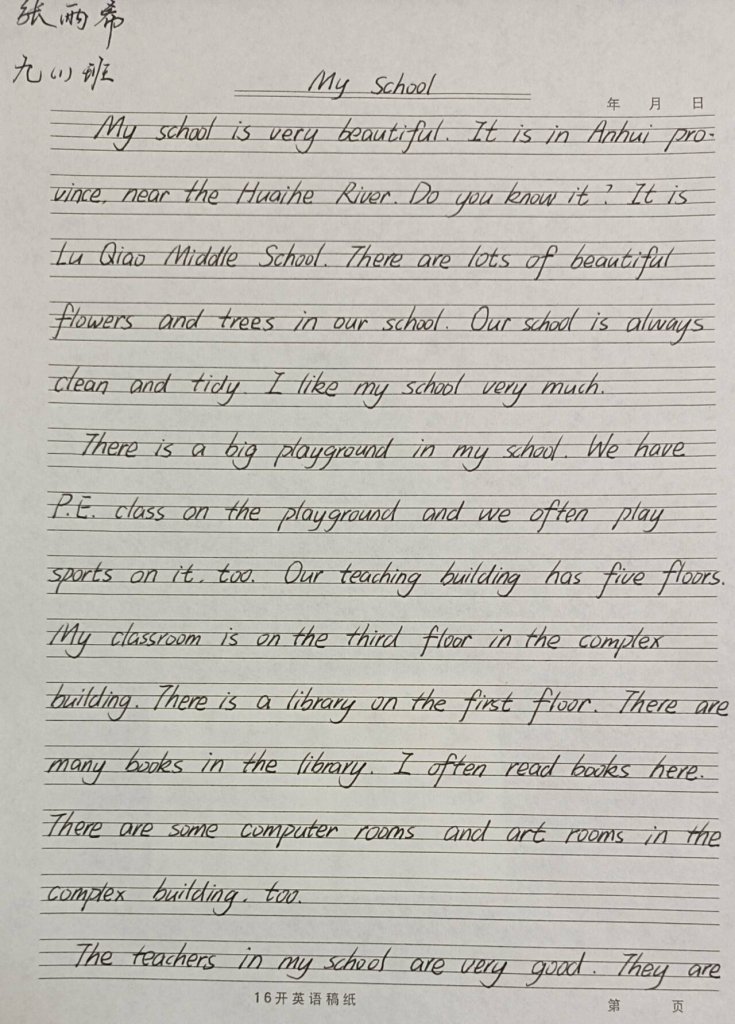 张雨希
九(1)班
My School
年 月 日
My school is very beautiful. It is in Anhui pro-
vince, near the Huaihe River. Do you know it? It is
Lu Qiao Middle School. There are lots of beautiful
flowers and trees in our school. Our school is always
clean and tidy. I like my school very much.
There is a big playground in my school. We have
P.E. class on the playground and we often play
sports on it, too. Our teaching building has five floors.
My classroom is on the third floor in the complex
building. There is a library on the first floor. There are
many books in the library. I often read books here.
There are some computer rooms and art rooms in the
complex building, too.
The teachers in my school are very good. They are
16开英语稿纸
第 页